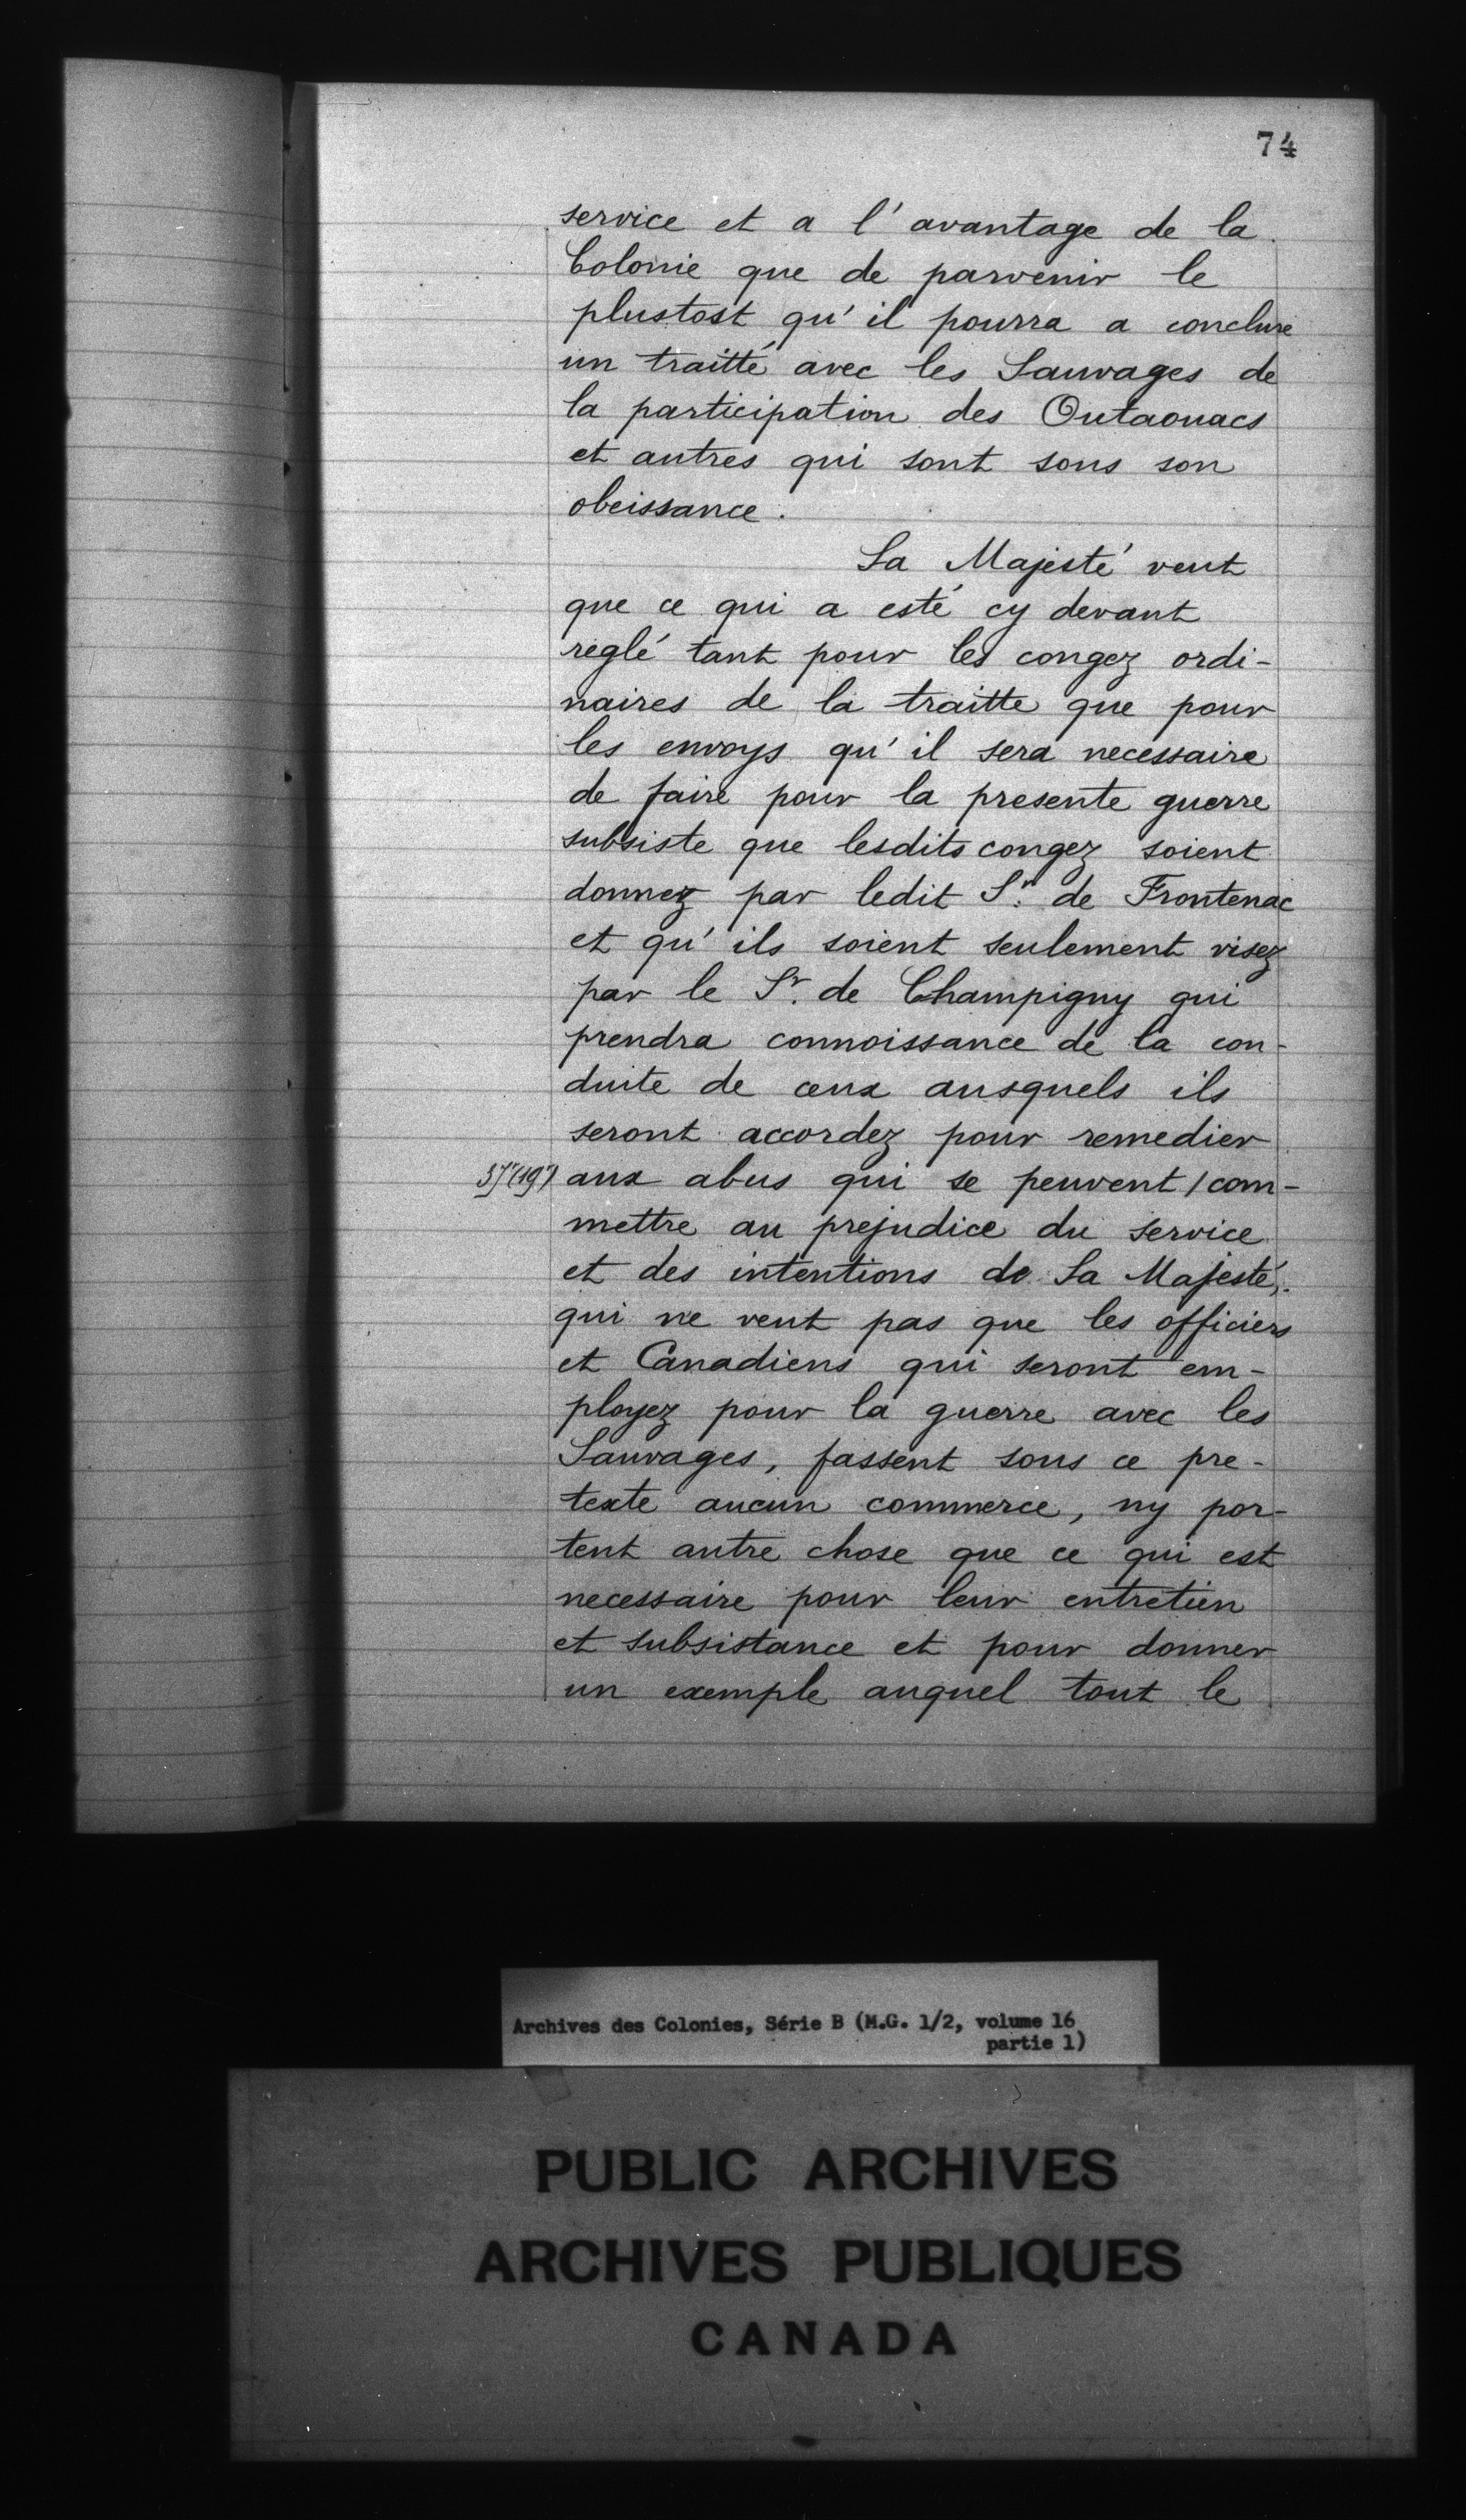 74
service et a l'avantage de la
Colonie que de parvenir le
plustost qu'il pourra a conclure
un traitté avec les Sauvages de
la participation des Outaouacs
et autres qui sont sous son
obeissance.
Sa Majesté veut
que ce qui a esté cy devant
reglé tant pour les congez ordi-
naires de la traitte que pour
les envoys qu'il sera necessaire
de faire pour la presente guerre
subsiste que lesdits congez soient
donnez par ledit Sr. de Frontenac
et qu'ils soient seulement visez
par le Sr. de Champigny qui
prendra connoissance de la con-
duite de ceux ausquels ils
seront accordez pour remedier
aux abus qui se peuvent / com-
mettre au prejudice du service
et des intentions de Sa Majesté,
qui ne veut pas que les officiers
et Canadiens qui seront em-
ployez pour la guerre avec les
Sauvages, fassent sous ce pre-
texte aucun commerce, ny por-
tent autre chose que ce qui est
necessaire pour leur entretien
et subsistance et pour donner
un exemple auquel tout le
Archives des Colonies, Série B (M.G. 1/2, volume 16
partie 1)
PUBLIC ARCHIVES
ARCHIVES PUBLIQUES
CANADA